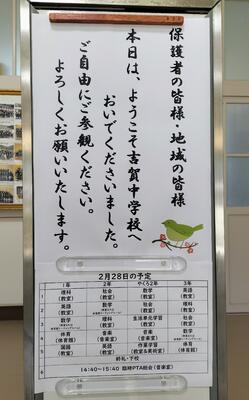 保護者の皆様・地域の皆様
本日は、ようこそ吉賀中学校へ
おいでくださいました。
ご自由にご参観ください。
よろしくお願いいたします。
2月28日の予定
1年 2年 やくろ2年 3年
1 理科（教室） 社会（教室） 数学（教室） 英語（教室）
2 英語（教室） 数学 理科（教室）
3 数学 理科 生活単元学習（教室） 社会（教室）
4 体育（体育館） 音楽（音楽室） 音楽（音楽室） 数学（教室）
5 国語（教室） 英語（教室） 作業学習（教室&美術室） 体育（体育館）
終礼・下校
14:40～15:40 臨時PTA総会（音楽室）